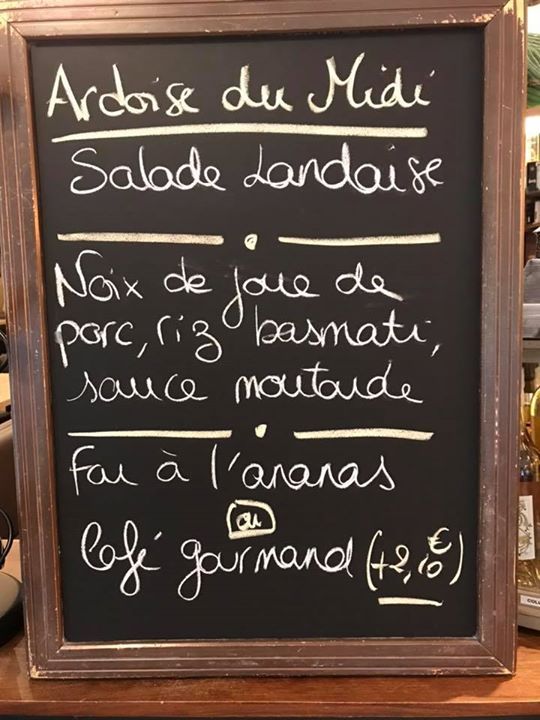 Ardoise du Midi
Salade Landaise
Noix de joue de
porc, riz basmati,
sauce moutarde
à l'ananas
ou
Café gourmand (+2,10€)